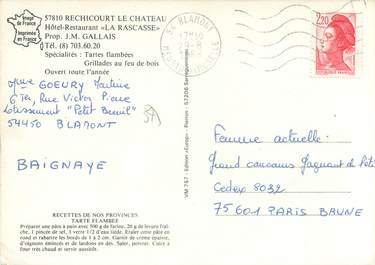 Image
de France
Imprimée
en France
57810 RECHICOURT LE CHATEAU
Hôtel-Restaurant «LA RASCASSE»
Prop. J.M. GALLAIS
Tél. (8) 703.60.20
Spécialités : Tartes flambées
Grillades au feu de bois
Ouvert toute l'année
Mme GOEURY Martine
6 Ter, Rue Victor Pierre
Lotissement "Petit Breuil"
54450 BLAMONT
BAIGNAYE
57
RECETTES DE NOS PROVINCES
TARTE FLAMBEE
Préparer une pâte à pain avec 500 g de farine, 20 g de levure fraîche,
1 pincée de sel, 1 verre 1/2 d'eau tiède. Etaler cette pâte en
rond et rabattre les bords de 1 à 2 cm. Garnir de crème épaisse,
d'oignons émincés et de lardons en dés. Saler, poivrer. Cuire à
four très chaud et servir aussitôt.
VM 767 - Edition «Europ» - Pierron - 57206 Sarreguemines
54 BLAMONT
2,20
Femme actuelle
Grand concours Gagnant de l'été
Cedex 9032
75601 PARIS BRUNE